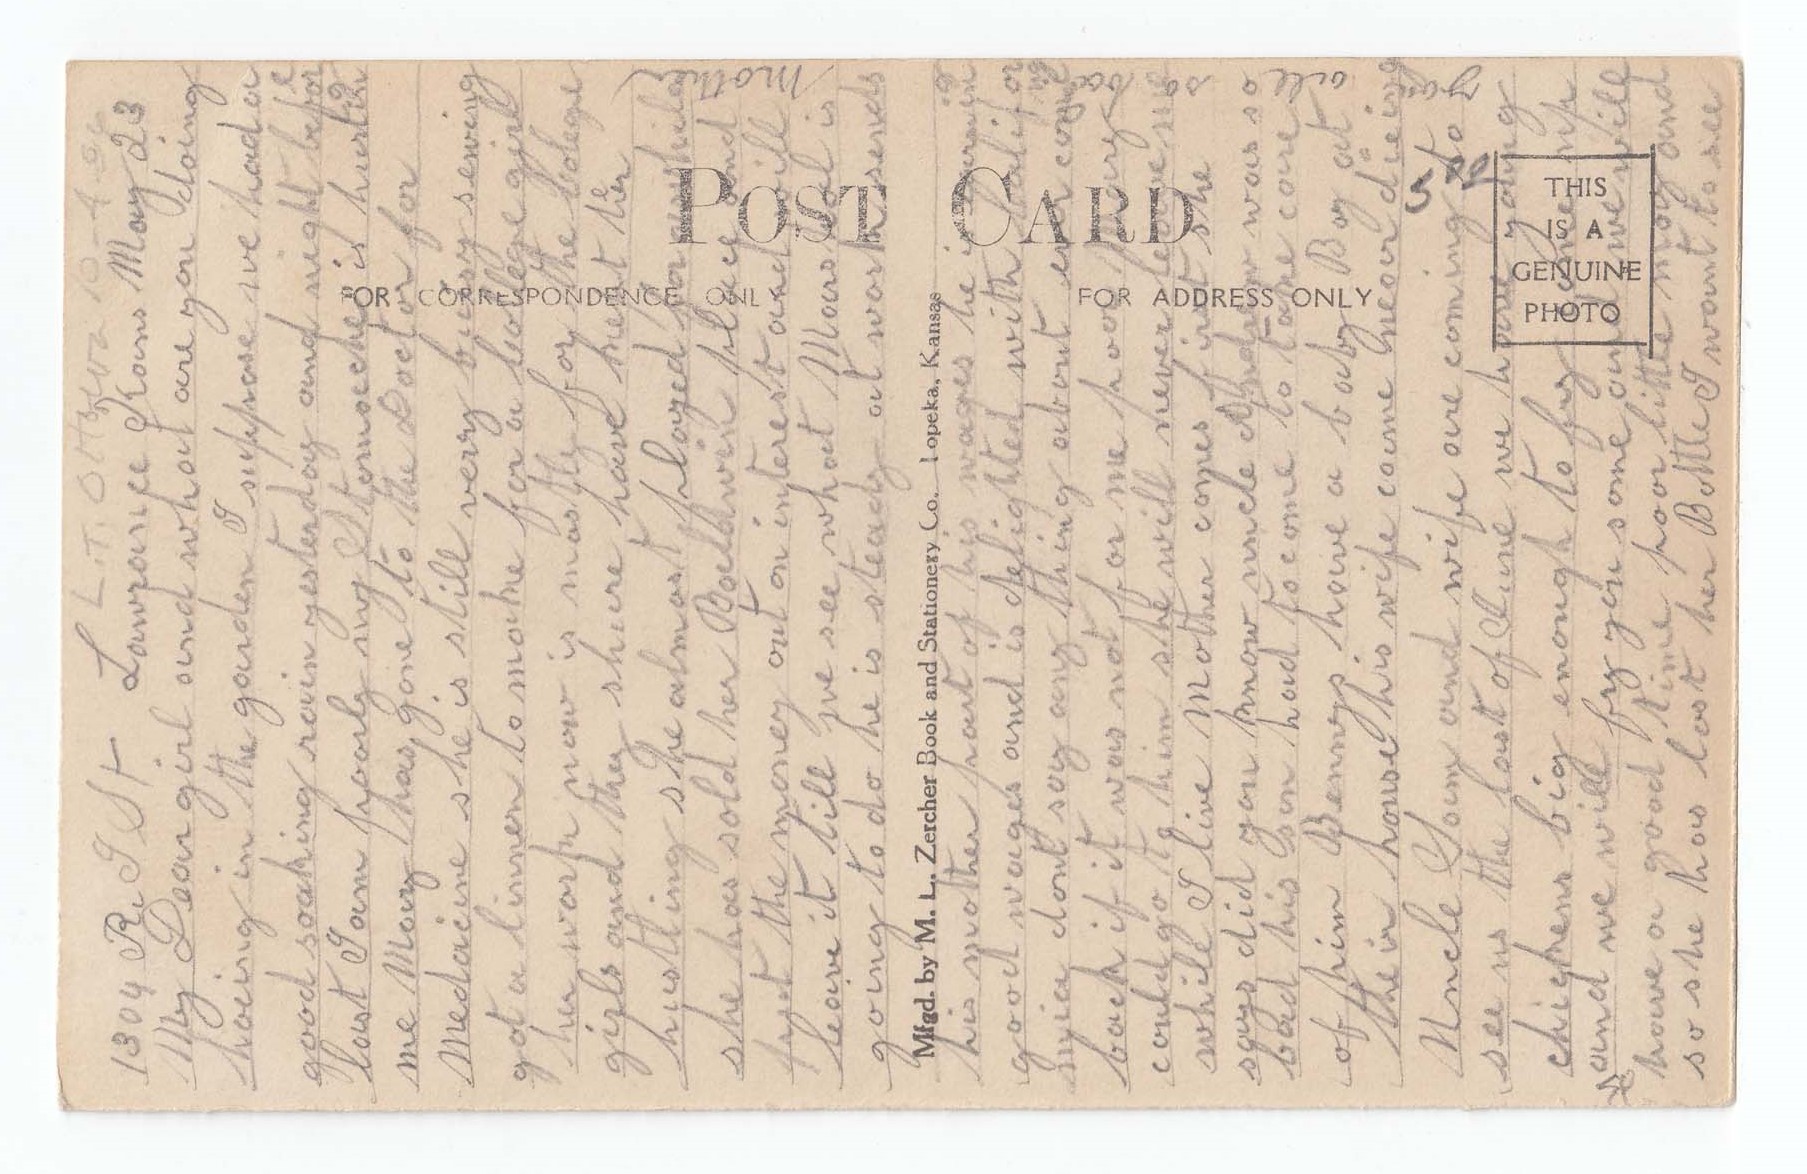 L.T. Ottawa
1304 R. I St Lawrance Kans May 23
My Dear girl and what are you doing
hoeing in the garden I suppose we had a
good soaking rain yesterday and night before
last I am poorly my Stomeche is hurting
me May has gone to the Doctor for
Medacine she is still very busy sewing
got a linnen to make for a colege girl
her work now is mostly for the colege
girls and they shure have kept her
hustling she almost played for a while
she has sold her Bauldwin place and
put the money out on interest and will
leave it till we see what Mars wol is
going to do he is steady at work sends
his mother part of his wages he is getting
good wages and is delighted with Califor
nia dont say any thing about ever comg
back if it was not for me poor Mary
could go to him she will never leave me
while I live Mother comes first she
says did you know uncle Andrew was so
bad his son had to come to take care
of him Bennys have a baby Boy at
their house his wife came near dieing
Uncle Sam and wife are coming to
see us the last of June we have young
chickens big enough to fry come up
and we will fry you some and we will
have a good time poor little May and
so she has lost her Bottle I want to see
you
all
so
Mother
POST CARD
FOR CORRESPONDENCE ONLY
FOR ADDRESS ONLY
THIS
IS A
GENUINE
PHOTO
Mfgd. by M. L. Zercher Book and Stationery Co. Topeka, Kansas